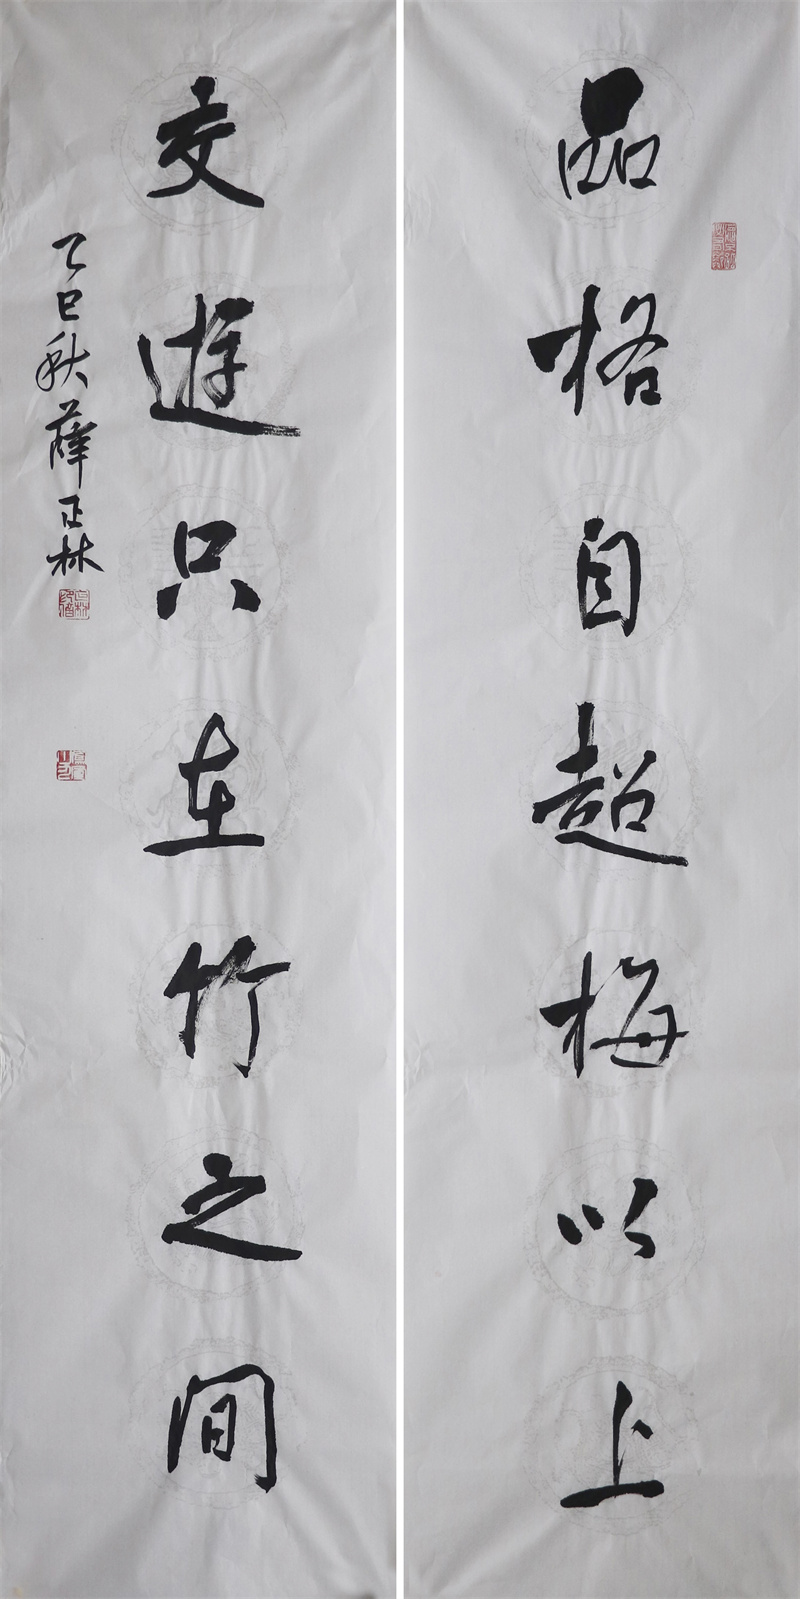 品格自超梅以上
交遊只在竹之間
乙巳秋薛正林